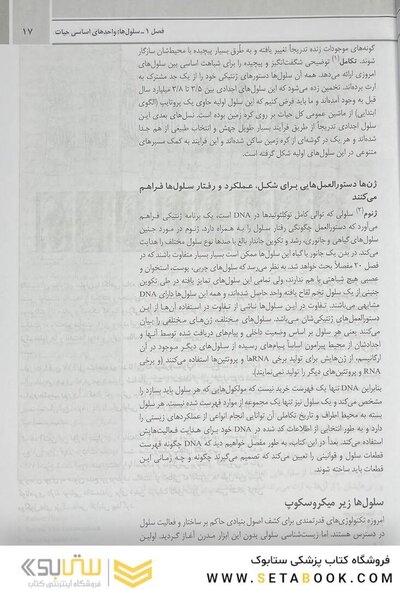 فصل ۱ ــ سلول‌ها: واحدهای اساسی حیات ۱۷
گونه‌های موجودات زنده تدریجاً تغییر یافته و به طرُق بسیار پیچیده با محیط‌شان سازگار
شوند. تکامل(۱) توضیحی شگفت‌انگیز و پیچیده را برای شباهت اساسی بین سلول‌های
امروزی ارائه می‌دهد. همه آن سلول‌ها دستورهای ژنتیکی خود را از یک جد مشترک به
ارث برده‌اند. تخمین زده می‌شود که این سلول‌های اجدادی بین ۳/۵ تا ۳/۸ میلیارد سال
قبل به وجود آمده‌اند و ما باید فرض کنیم که این سلول اولیه حاوی یک پروتایپ (الگوی
ابتدایی) از ماشین عمومی کل حیات بر روی کره زمین بوده است. نسل‌های بعدی این
سلول اجدادی تدریجاً از طریق فرآیند بسیار طویل جهش و انتخاب طبیعی از هم جدا
شده‌اند و هر یک در گوشه‌ای از کره زمین ساکن شده‌اند و این فرآیند به کمک مسیرهای
متنوعی در این سلول‌های اولیه شکل گرفته است.
ژن‌ها دستورالعمل‌هایی برای شکل، عملکرد و رفتار سلول‌ها فراهم
می‌کنند
ژنوم(۲) سلولی که توالی کامل نوکلئوتیدها در DNA است، یک برنامه ژنتیکی فراهم
می‌آورد که دستورالعمل چگونگی رفتار سلول را به همراه دارد. ژنوم در مورد جنین
سلول‌های گیاهی و جانوری، رشد و تکوین جاندار بالغ با صدها نوع سلول مختلف را هدایت
می‌کند. در بدن یک جانور یا گیاه این سلول‌ها ممکن است بسیار بسیار متفاوت باشند که در
فصل ۲۰ مفصلاً بحث خواهد شد. به نظر می‌رسد که سلول‌های چربی، پوست، استخوان و
عصبی هیچ شباهتی با هم ندارند، ولی تمامی این سلول‌های تمایز یافته در طی تکوین
جنینی از یک سلول تخم لقاح یافته واحد حاصل شده‌اند، و همه این سلول‌ها دارای DNA
مشابهی می‌باشند. تفاوت در این سلول‌ها ناشی از تفاوت در استفاده آن‌ها از این
دستورالعمل‌های ژنتیکی‌شان می‌باشد. سلول‌های مختلف، ژن‌های مختلفی را بیان
می‌کنند یعنی هر سلول بر اساس وضعیت داخلی و پیام‌های دریافت شده توسط آنها و
اجدادشان از محیط پیرامون اساساً پیام‌های رسیده از سلول‌های دیگر موجود در آن
ارگانیسم، از ژن‌هایش برای تولید برخی RNAها و پروتئین‌ها استفاده می‌کنند (و برخی
RNA و پروتئین‌های دیگر را تولید نمی‌نمایند).
بنابراین DNA تنها یک فهرست خرید نیست که مولکول‌هایی که هر سلول باید بسازد را
مشخص می‌کند و یک سلول نیز تنها یک مجموعه از موارد فهرست شده نیست. هر سلول
بسته به محیط اطراف و تاریخ تکاملی آن توانایی انجام انواعی از عملکردهای زیستی را
دارد و به طور انتخابی از اطلاعات کد شده در DNA خود برای هدایت فعالیت‌هایش
استفاده می‌کند. بعداً در این کتاب، به طور مفصل خواهیم دید که DNA چگونه فهرست
قطعات سلول و قوانینی را تعیین می‌کند که تصمیم می‌گیرند چگونه و چه زمانی این
قطعات باید ساخته شوند.
سلول‌ها زیر میکروسکوپ
امروزه تکنولوژی‌های قدرتمندی برای کشف اصول بنیادی حاکم بر ساختار و فعالیت سلول
در دسترس هستند. اما زیست‌شناسی سلولی بدون این ابزار مدرن آغاز گردید. اولین
فروشگاه کتاب پزشکی ستابوک
WWW.SETABOOK.COM
ستابوک
فروشگاه اینترنتی کتاب